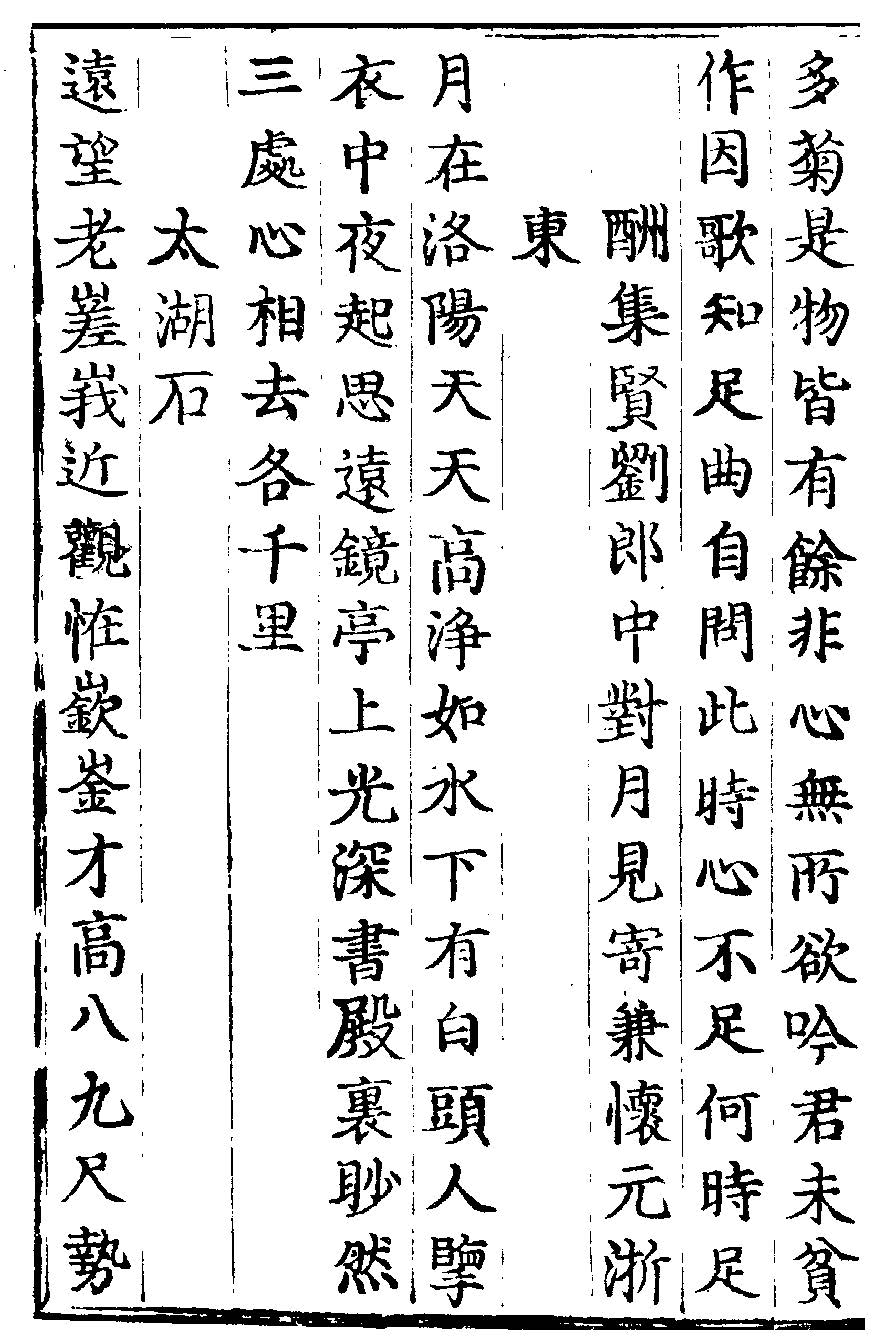 多菊是物皆有餘非心無所欲吟君未貧
作因歌知足曲自問此時心不足何時足
酬集賢劉郎中對月見寄兼懷元浙
東
月在洛陽天天高淨如水下有白頭人擥
衣中夜起思遠鏡亭上光深書殿裏眇然
三處心相去各千里
太湖石
遠望老嵳峩近觀恠嶔崟才高八九尺勢